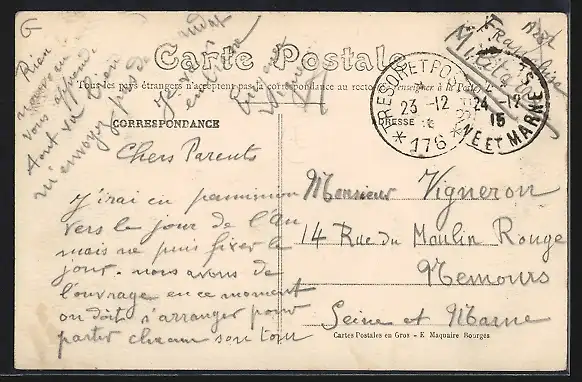 G
Rien
nouveau
vous apprendre
tout va bien
m'envoyez pas de mandat
Je vous
embrasse
Eugène
Vigneron
Franchise
Militaire
Carte Postale
Tous les pays étrangers n'acceptent pas la correspondance au recto. (Se renseigner à la Poste).
CORRESPONDANCE
ADRESSE
TRESOR ET POSTES
23 -12
* 176 *
24 -12
15
NE ET MARNE
Chers Parents
J'irai en permission
vers le jour de l'An
mais ne puis fixer le
jour. nous avons de
l'ouvrage en ce moment
on doit s'arranger pour
partir chacun son tour
Monsieur Vigneron
14 Rue du Moulin Rouge
Nemours
Seine et Marne
Cartes Postales en Gros - E. Maquaire Bourges